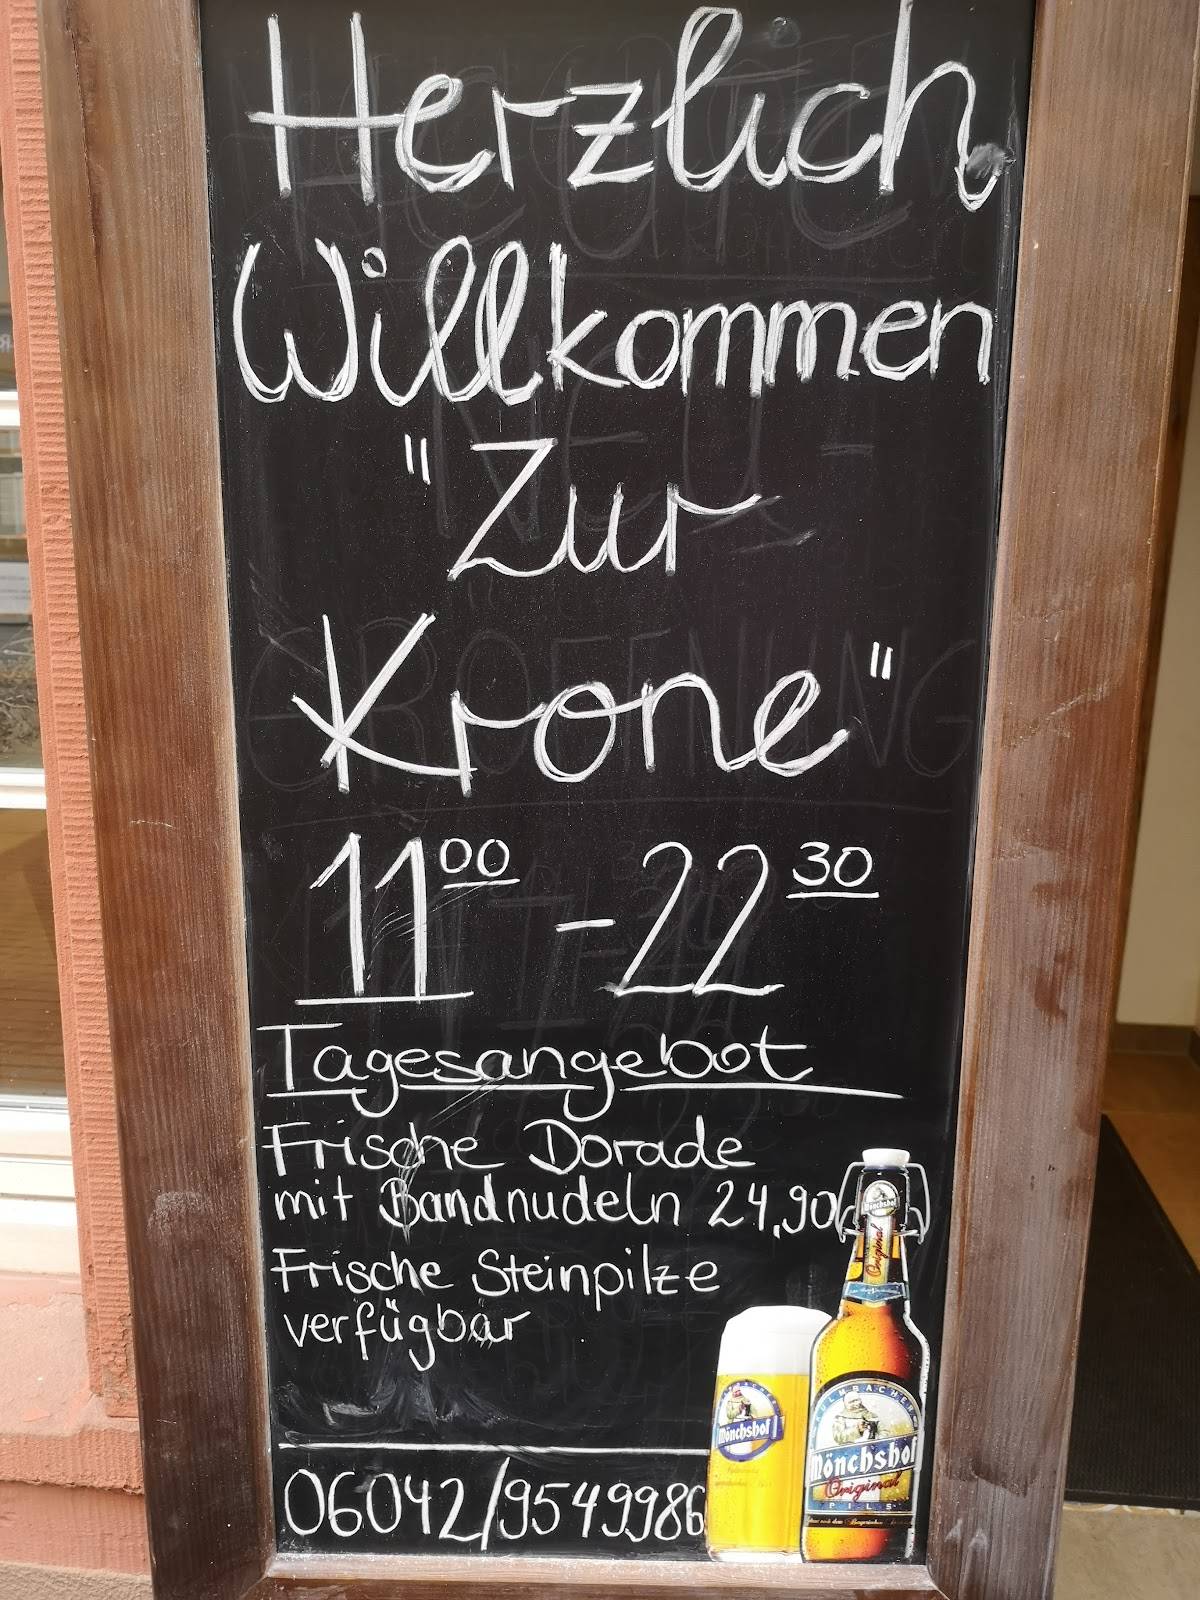 Herzlich
Willkommen
"Zur
Krone"
11 00 - 22 30
Tagesangebot
Frische Dorade
mit Bandnudeln 24,90
Frische Steinpilze
verfügbar
06042/9549986
Mönchshof
Original
Mönchshof
KULMBACHER
Mönchshof
Original
PILS